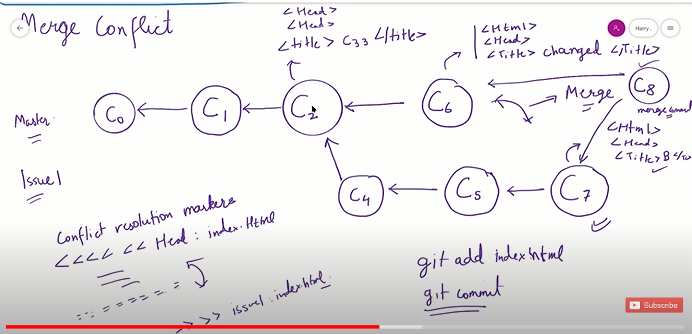 Merge Conflict
<Head>
<Head>
<title> C33 </title>
<Html>
<Head>
<Title> changed </Title>
Harry
Master
C0
C1
C2
C6
Merge
C8
merge commit
<Html>
<Head>
<Title> B
Issue 1
C4
C5
C7
Conflict resolution markers
<<<< << Head : index.Html
=======
>>>> issue1 : index.html
git add index.html
git commit
Subscribe